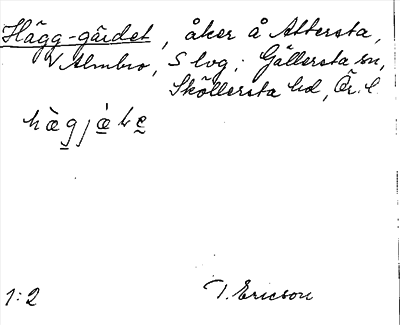 Hägg-gärdet, åker å Attersta,
V Almbro, S lvg; Gällersta sn,
Sköllersta hd, Ör. l.
1:2 T. Ericson